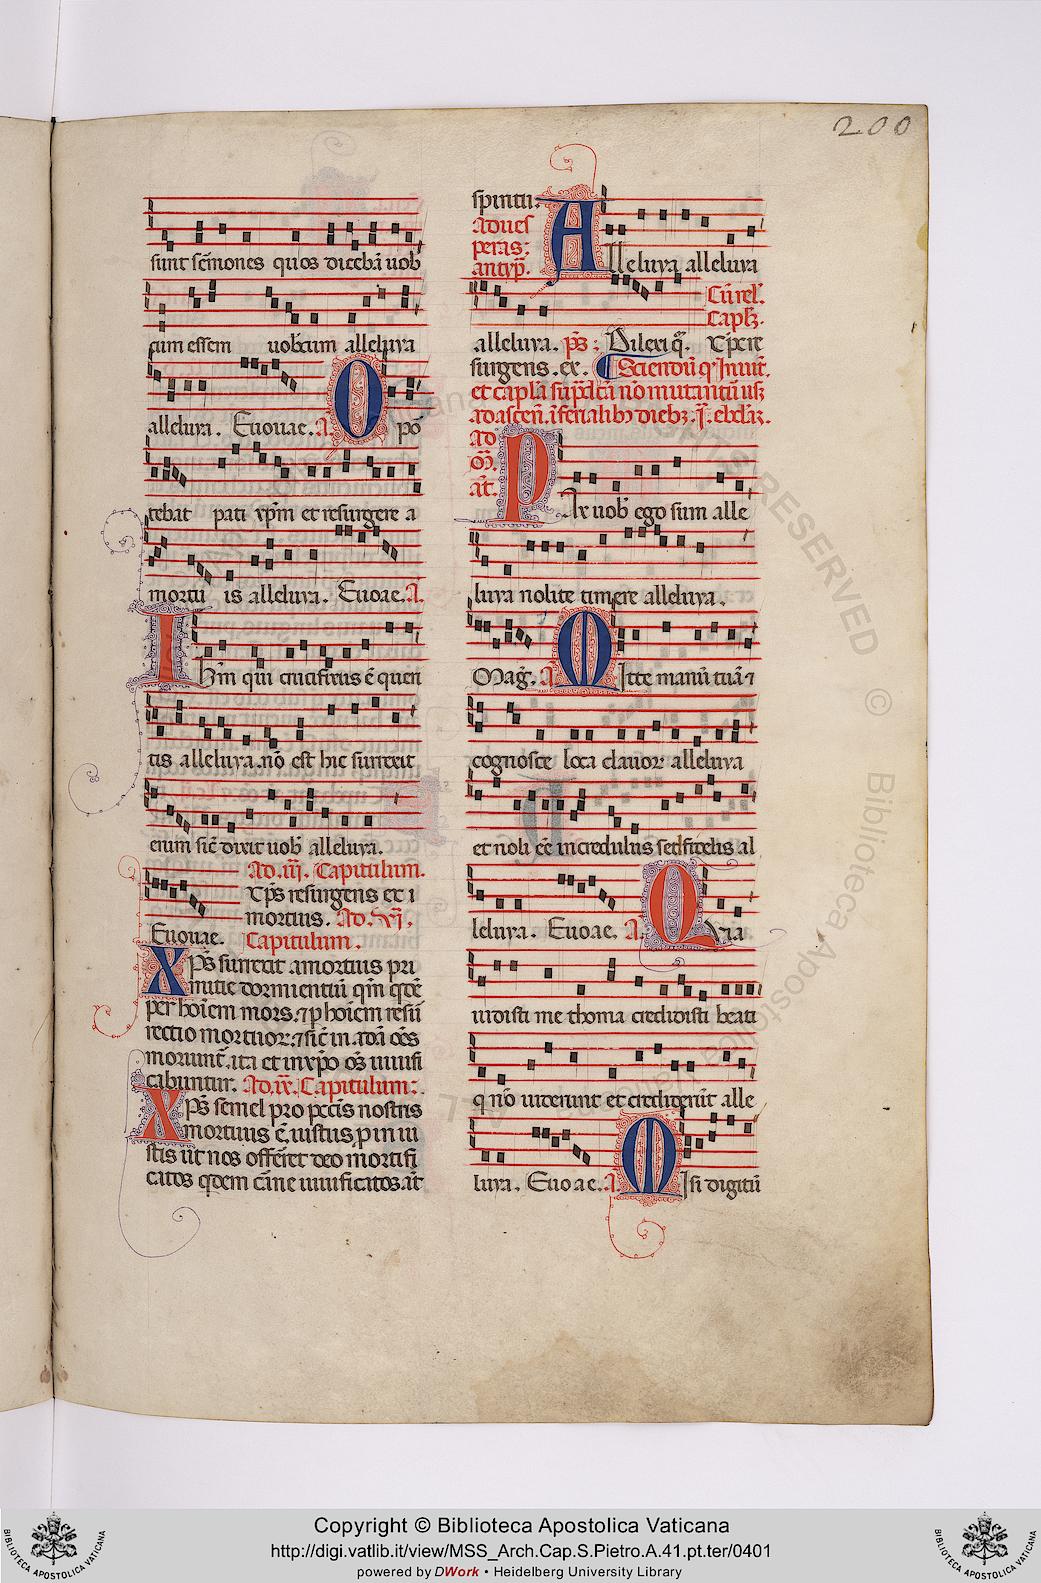 200
sunt sermones quos diceba uob
cum essem uobcum alleluya
alleluya. Euouae. A. Opo
tebat pati xpm et resurgere a
mortu is alleluya. Euoae. A.
Ihm qui crucifixus e queri
tis alleluya. no est hic surrexit
enim sic dixit uob alleluya.
Ad. iii. Capitulum.
Xps resurgens ex i
mortuis. Ad. vi.
Euouae. Capitulum.
Xps surrexit a mortuis pri
mitie dormientiu qm qdem
per hoiem mors. ⁊ p hoiem resu
rectio mortuor. ⁊ sic in ada oes
moriunt. ita et in xpo os uiuifi
cabuntur. Ad. ix. Capitulum:
Xps semel pro pccis nostris
mortuus e. iustus p in iu
stis ut nos offerret deo mortifi
catos qdem carne uiuificatos at
spiritu. Alleluya alleluya
Ad ues
peras:
antyp.
Cu rel.
Capl.
alleluya. ps: Dilexi q. Xpc re
surgens. ex. Sciendu q Inuit.
et capla supdca no mutantur usq
ad ascen. i ferialib dieb. I. ebd
Ad
at. Pax uob ego sum alle
luya nolite timere alleluya.
Mag. A Mitte manu tua ⁊
cognosce loca clauor alleluya
et noli ee incredulus sed fidelis al
leluya. Euoae. A. Quia
uidisti me thoma credidisti beati
q no uiderunt et crediderut alle
luya. Euoae. A. Misi digitu
© Biblioteca Apostolica Vaticana
Copyright © Biblioteca Apostolica Vaticana
http://digi.vatlib.it/view/MSS_Arch.Cap.S.Pietro.A.41.pt.ter/0401
powered by DWork • Heidelberg University Library
BIBLIOTECA APOSTOLICA VATICANA
BIBLIOTECA APOSTOLICA VATICANA